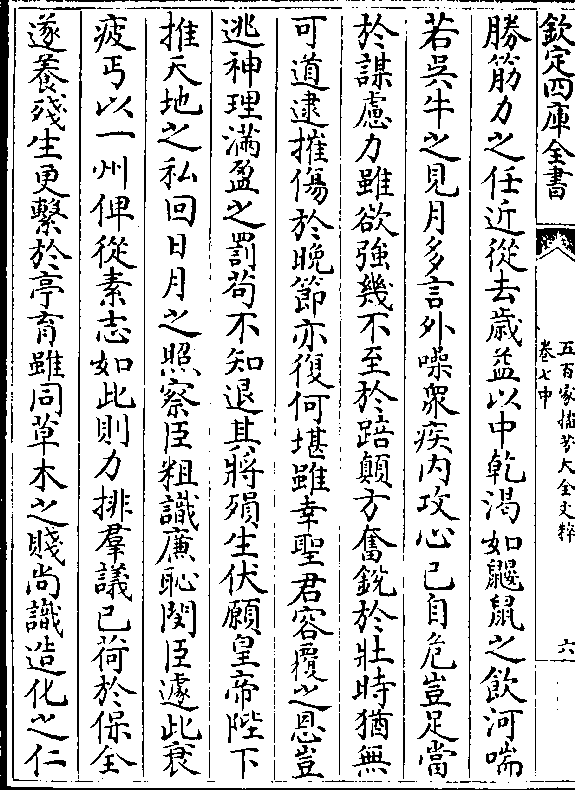 欽定四庫全書
五百家播芳大全文粹
卷七中
六
勝筋力之任近從去歲益以中乾渴如鼴鼠之飲河喘
若吳牛之見月多言外噪衆疾内攻心已自危豈足當
於謀慮力雖欲強幾不至於踣顛方奮銳於壯時猶無
可道逮摧傷於晚節亦復何堪雖幸聖君容覆之恩豈
逃神理滿盈之罰苟不知退其將殞生伏願皇帝陛下
推天地之私回日月之照察臣粗識廉恥閔臣遽此衰
疲丐以一州俾從素志如此則力排羣議已荷於保全
遂養殘生更繫於亭育雖同草木之賤尚識造化之仁